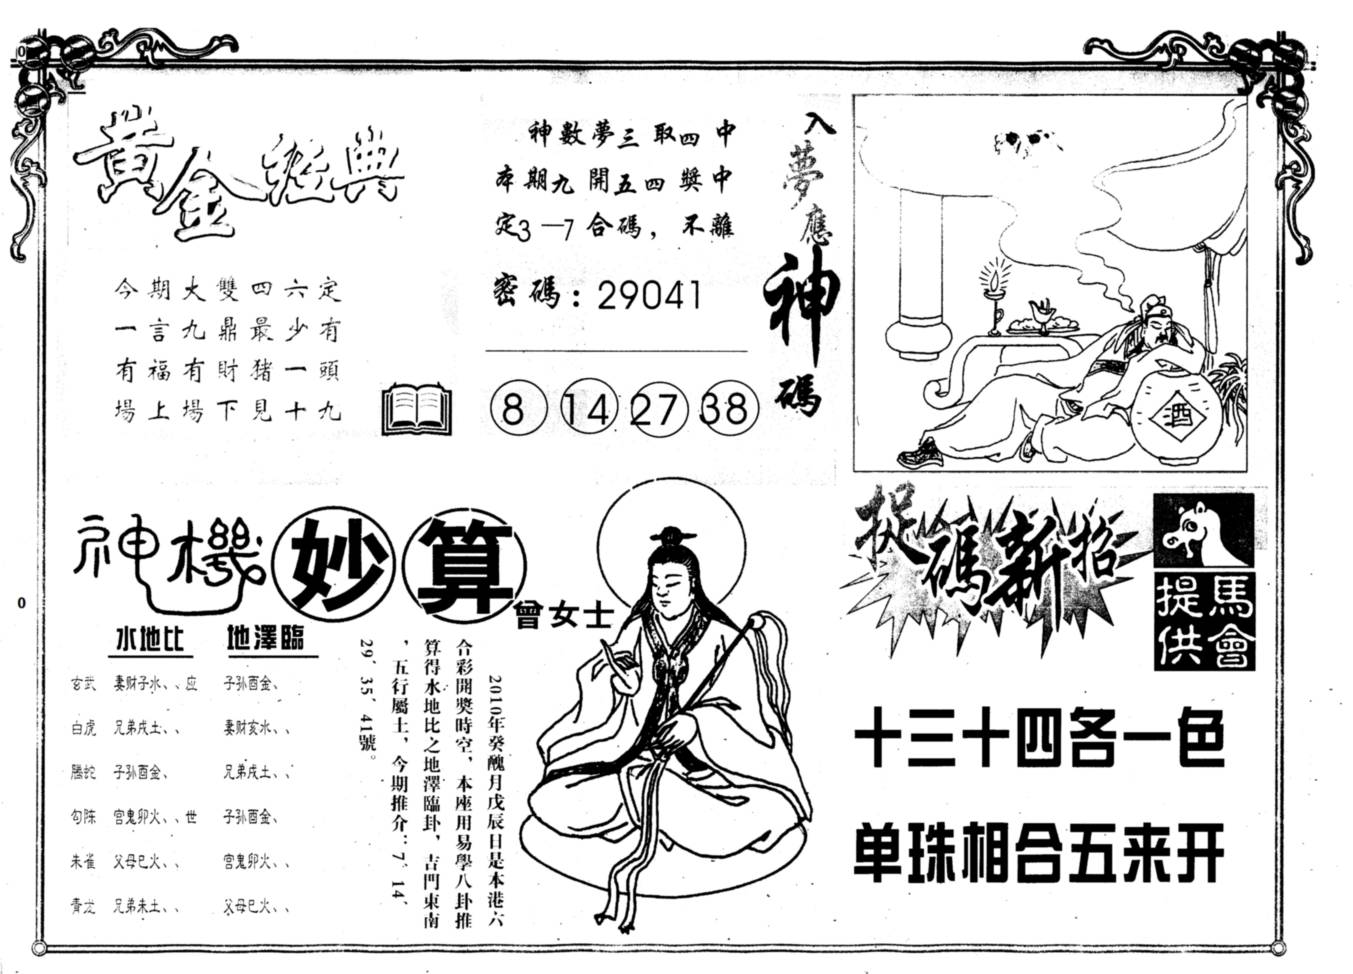 黃金經典
今期大雙四六定
一言九鼎最少有
有福有財猪一頭
場上場下見十九
神數夢三取四中
本期九開五四獎中
定3—7合碼，不離
密碼：29041
8 14 27 38
入夢應神碼
酒
神機妙算
曾女士
水地比 地澤臨
玄武 妻财子水、、应 子孙酉金、
白虎 兄弟戌土、、 妻财亥水、、
螣蛇 子孙酉金、 兄弟戌土、、
勾陈 官鬼卯火、、世 子孙酉金、
朱雀 父母巳火、、 官鬼卯火、、
青龙 兄弟未土、、 父母巳火、、
2010年癸醜月戊辰日是本港六
合彩開獎時空，本座用易學八卦推
算得水地比之地澤臨卦，吉門東南
，五行屬土，今期推介：7，14，
29，35，41號。
捉碼新招
馬會提供
十三十四各一色
单珠相合五来开
0
0